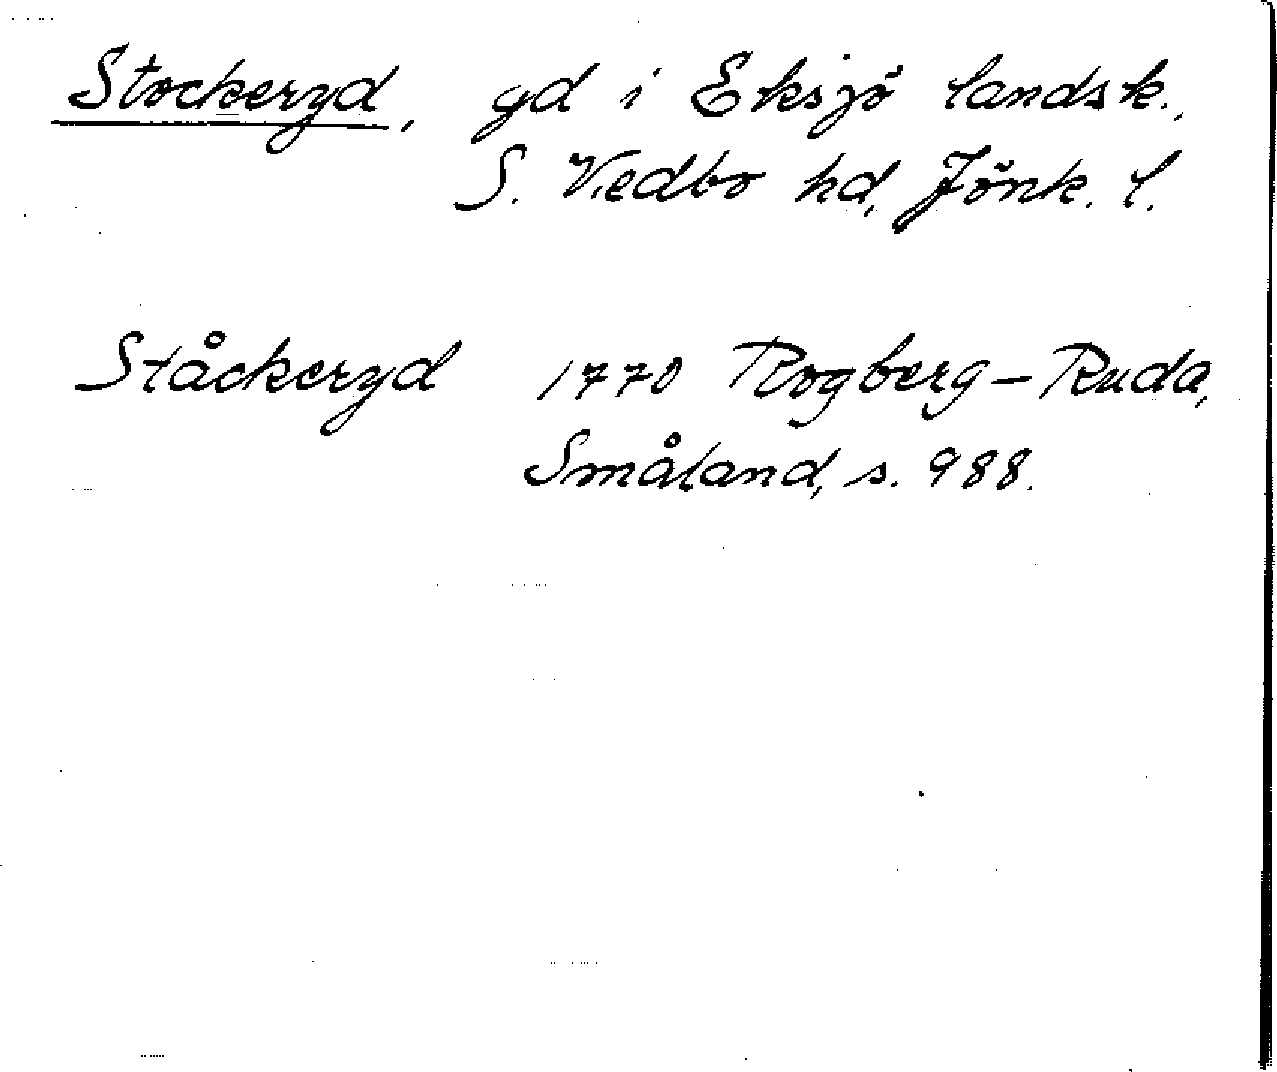 Stockeryd, gd i Eksjö landsk.,
S. Vedbo hd, Jönk. l.
Ståckeryd 1770 Rogberg–Ruda,
Småland, s. 988.